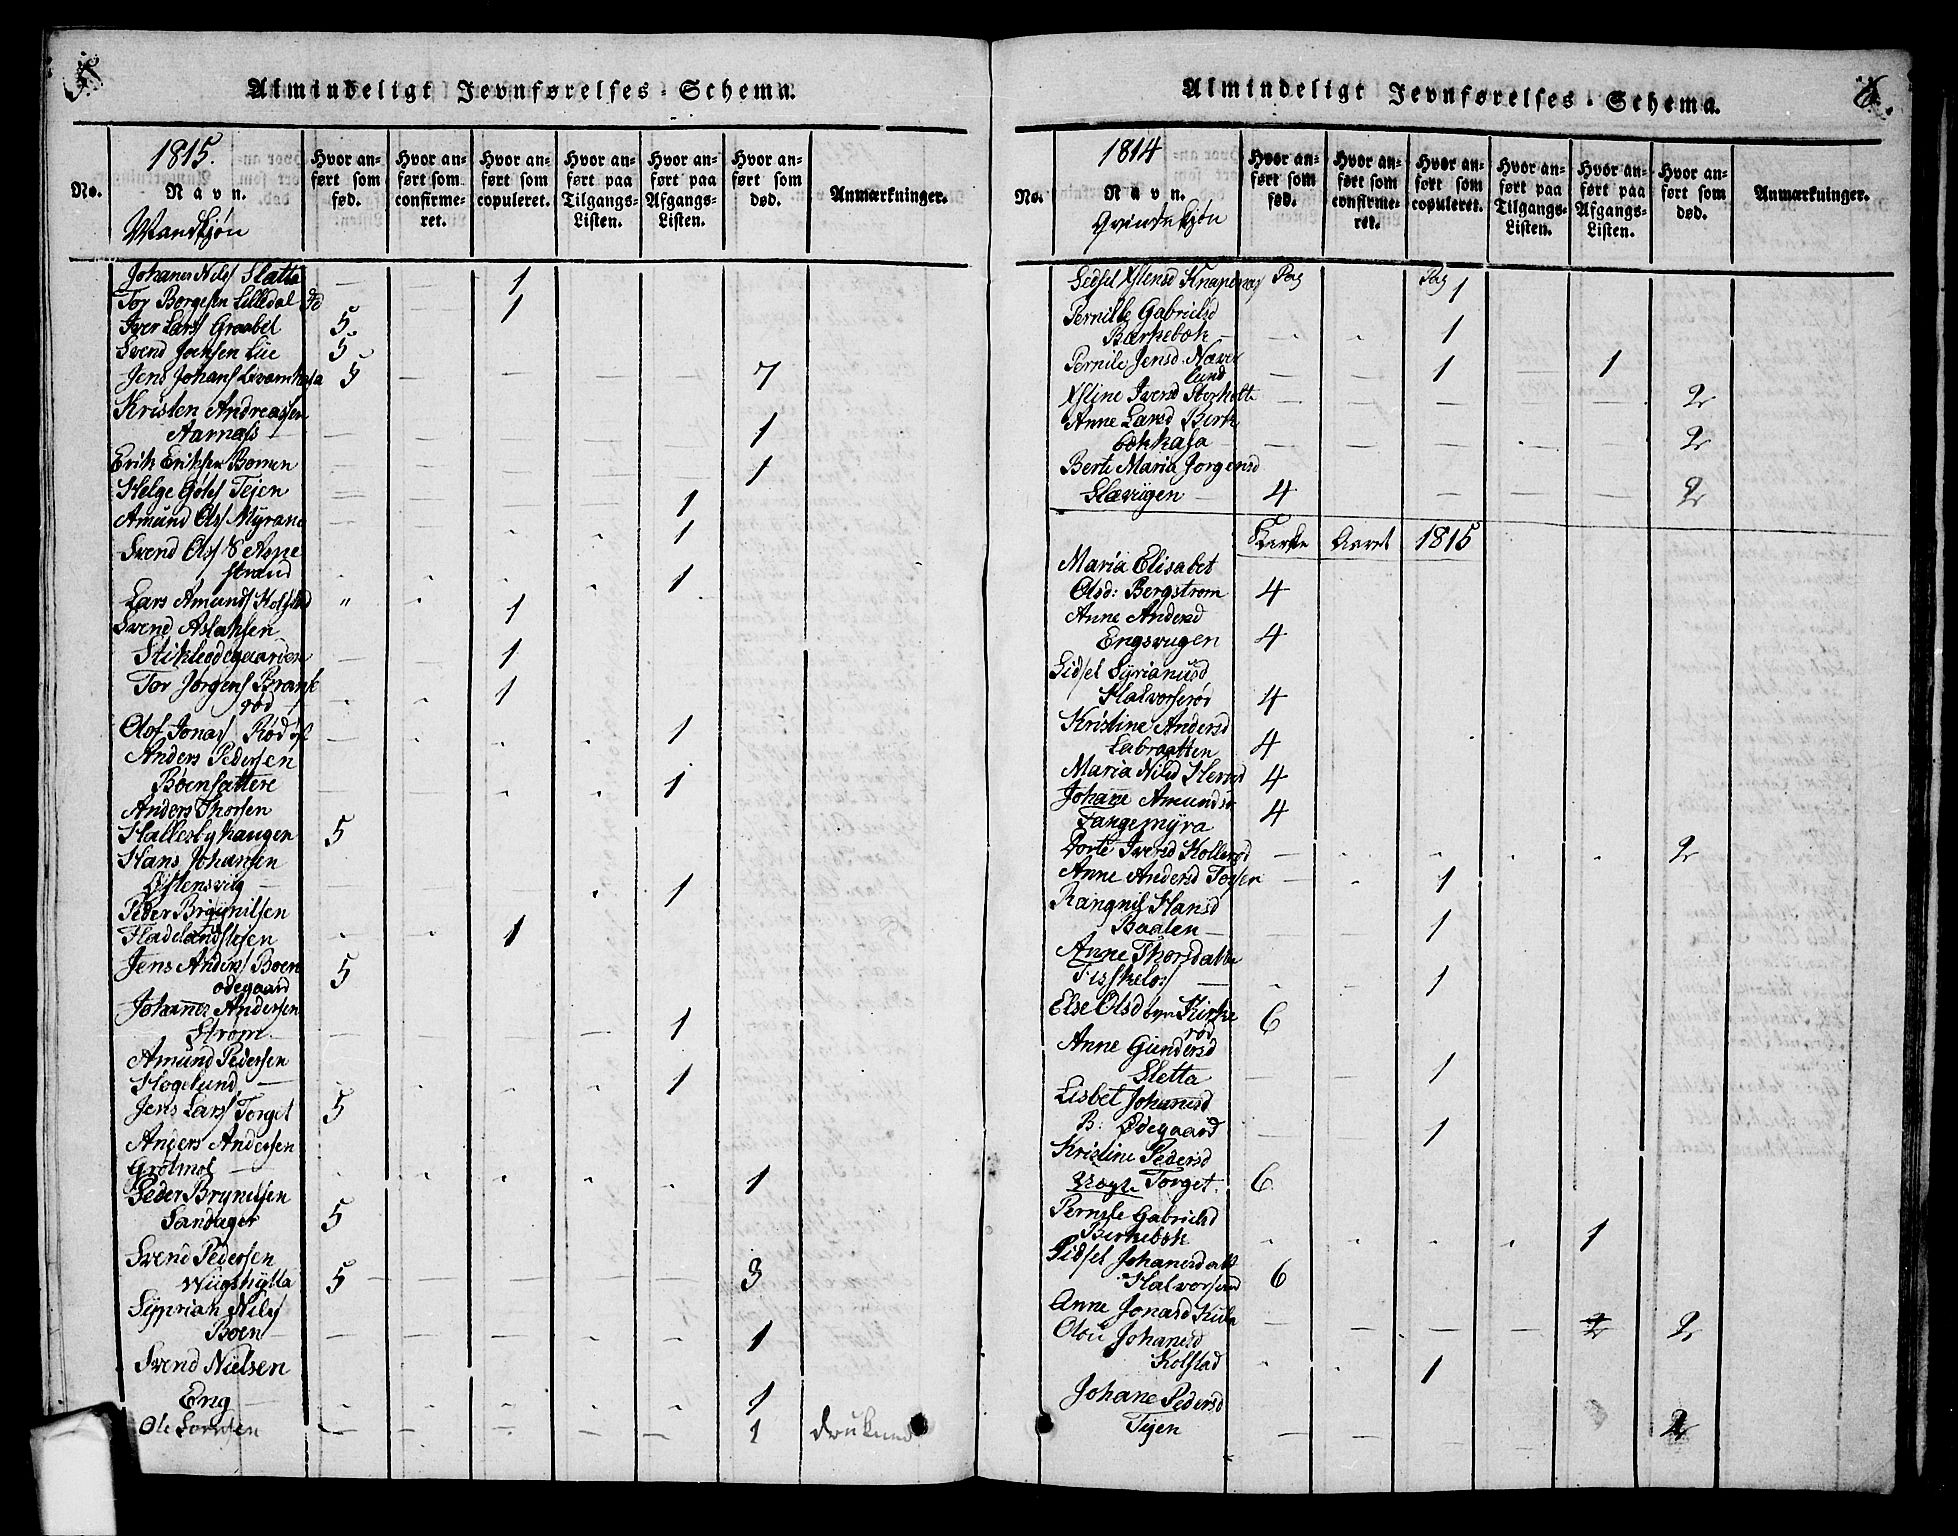 5
Almindeligt Jevnførelses-Schema.
1815.
No.
Navn.
Mandkjøn
Hvor an-
ført som
fød.
Hvor an-
ført som
confirme-
ret.
Hvor an-
ført som
copuleret.
Hvor an-
ført paa
Tilgangs-
Listen.
Hvor an-
ført paa
Afgangs-
Listen.
Hvor an-
ført som
død.
Anmærkninger.
Johanes Nils Sletta — — 1
Tor Borgesen Lilledal — 1
Iver Lars Graabel 5
Svend Joensen Lie 5
Jens Johans 5 — — — — 7
Kristen Andreassen
Aarnæss — — — — — 1
Erik Eriksen Bomen — — — — — 1
Helge Tejen — — — — 1
Amund Ols Myrane — 1
Svend Ols
strand 1
Lars Amunds Kolstad " 1
Svend Aslaksen
Stikleødegaarden — — 1
Tor Jørgens Brænt
rød — 1
Olof Jonas Rød — 1
Anders Pedersen
Bøensættere — — — 1
Anders Thorsen
Hallesbyhaugen 5
Hans Johansen
Østensvig — — — 1
Peder Brynilsen
1
Jens Anders Boen
ødegaard 5
Johannes Andersen
Strøm — — — 1
Amund Pedersen
Høgelund — 1
Jens Lars Torget 5
Anders Andersen
Grötmol — 1
Peder Brynilsen
Sandager 5
Svend Pedersen
Wiigshytta 5 — — — — 3
Syprian Nils
Boen — — — 1
Svend Nielsen
Eng — 1
Ole Larsen — — — — — 1
6
Almindeligt Jevnførelses-Schema.
1814
No.
Navn.
Qvindekjøn
Hvor an-
ført som
fød.
Hvor an-
ført som
confirme-
ret.
Hvor an-
ført som
copuleret.
Hvor an-
ført paa
Tilgangs-
Listen.
Hvor an-
ført paa
Afgangs-
Listen.
Hvor an-
ført som
død.
Anmærkninger.
Sidsel Pag Pag 1
Pernille Gabrielsd
Bærkebok — 1
Pernile Jensd Næver
lund — — 1 1
Iversd Storholte — — — — — 2
Anne Larsd Birk
— — — — 2
Berte Maria Jorgensd
Slævigen — 4 — — — 2
Kirke Aaret 1815
Maria Elisabet
Olsd: Bergstrøm 4
Anne Andersd
Engsvigen 4
Sidsel Syrianusd
Halvorserød 4
Kristine Andersd
Labraatten 4
Maria Nilsd 4
Johanne Amundsd
Tangemyra 4
Dorte Iversd Kollerød — 2
Anne Andersd Torsen — 1
Rangnil Hansd
Baalen — 1
Anne Thorsdatter
1
Else Olsd Kirke
rød 6
Anne Gundersd
Sletta — — 1
Lisbet Johanesd
B: Ødegaard — — 1
Kristine Pedersd
Torget. 6
Pernille Gabrielsd
Birkebok 1
Sidsel Johanesdatt
6
Anne Jonasd Kiila — — — — 2 2
Olou Johanesd
Kolstad 1
Johane Pedersd
Tejen — — — — 2